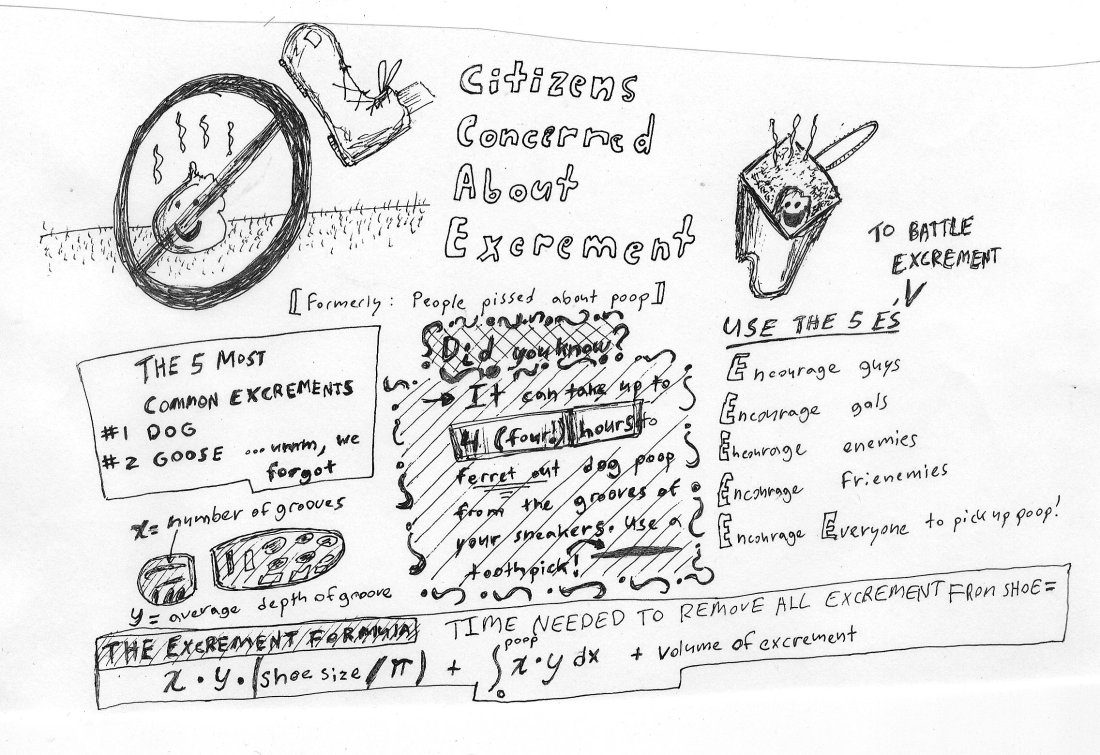 Citizens
Concerned
About
Excrement
[Formerly: People pissed about poop]
TO BATTLE
EXCREMENT
USE THE 5 E'S
Encourage guys
Encourage gals
Encourage enemies
Encourage Frienemies
Encourage Everyone to pick up poop!
THE 5 MOST
COMMON EXCREMENTS
#1 DOG
#2 GOOSE ...umm, we
forgot
Did you know?
→ It can take up to
4 (four!) hours to
ferret out dog poop
from the grooves of
your sneakers. Use a
toothpick!
x = number of grooves
y = average depth of groove
THE EXCREMENT FORMULA
TIME NEEDED TO REMOVE ALL EXCREMENT FROM SHOE =
x · y · (shoe size / π) + ∫₀ᵖᵒᵒᵖ x · y dx + volume of excrement